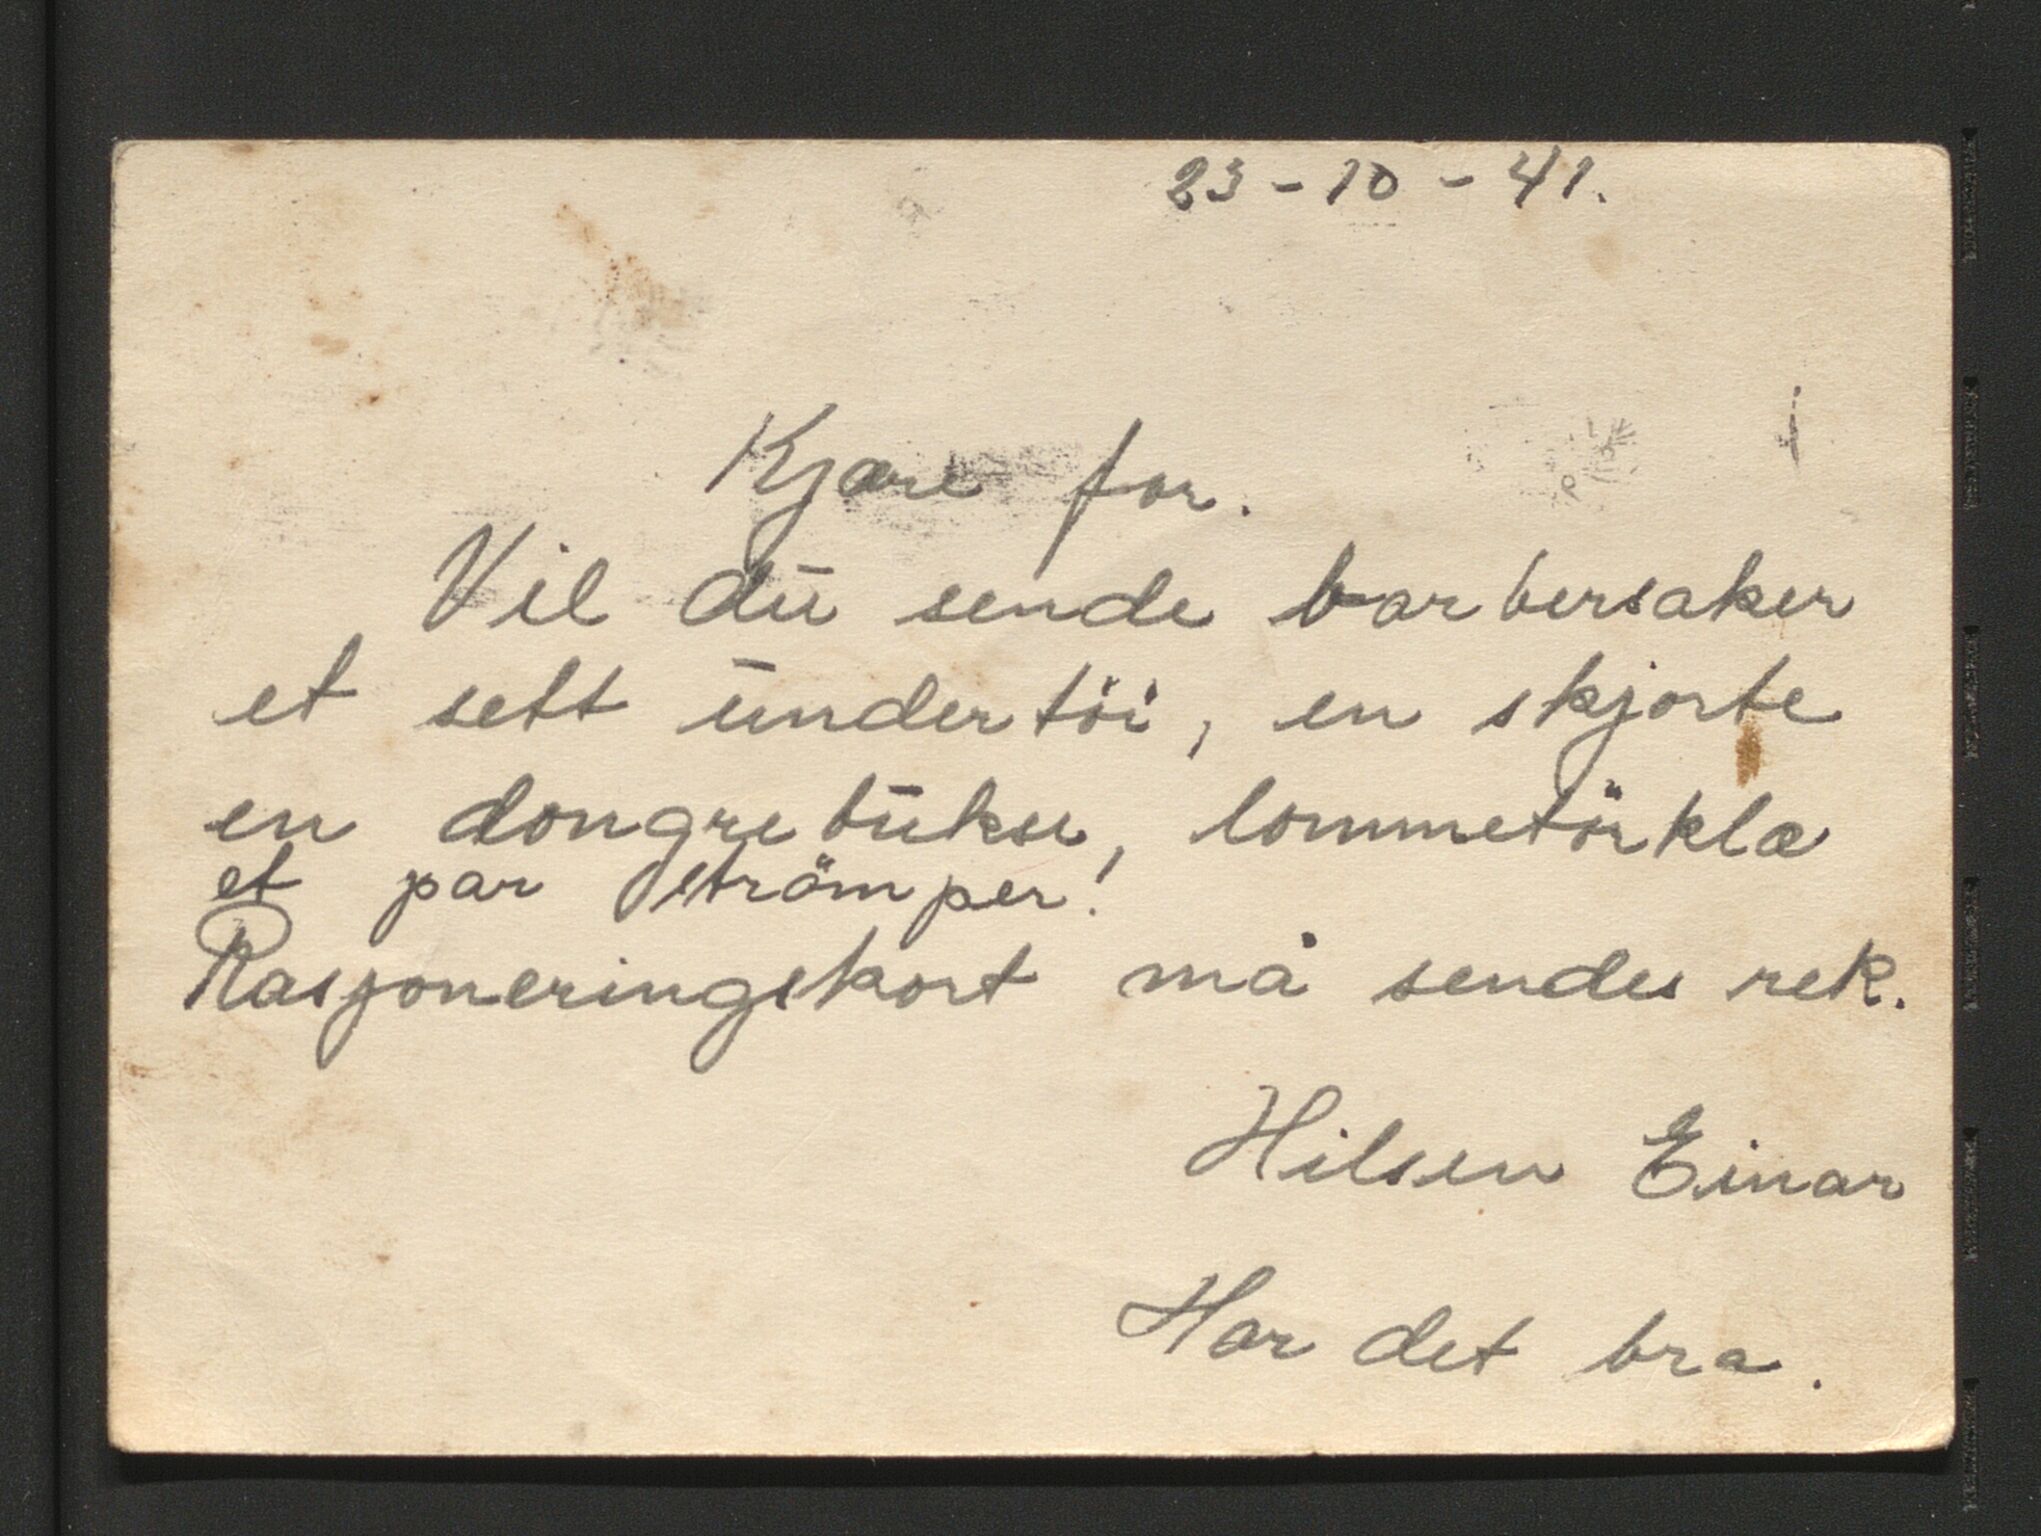 23-10-41.
Kjære far.
Vil du sende barbersaker
et sett undertöi, en skjorte
en dongrebukse, lommetörklæ
et par strömper!
Rasjoneringskort må sendes rek.
Hilsen Einar
Har det bra.